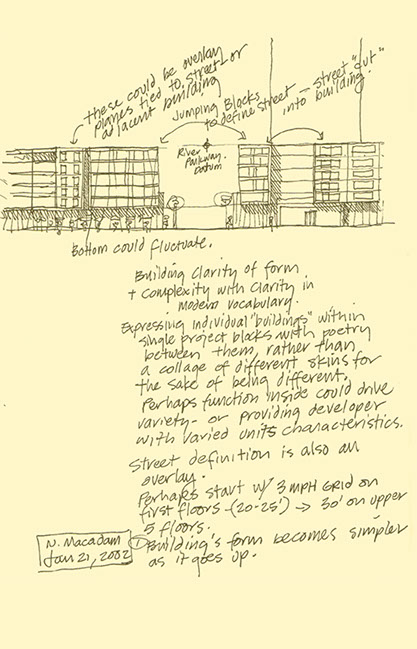 these could be overlay
planes tied to street or
adjacent building
Jumping Blocks
to define street
street "cut"
into building.
River
Parkway
Datum
Bottom could fluctuate.
Building clarity of form
+ complexity with clarity in
modern vocabulary.
Expressing individual "buildings" within
single project blocks with poetry
between them, rather than
a collage of different skins for
the sake of being different.
Perhaps function inside could drive
variety - or providing developer
with varied units characteristics.
Street definition is also an
overlay.
Perhaps start w/ 3 MPH GRID on
first floors - (20-25') → 30' on upper
5 floors.
① Building's form becomes simpler
as it goes up.
N. Macadam
Jan 21, 2002